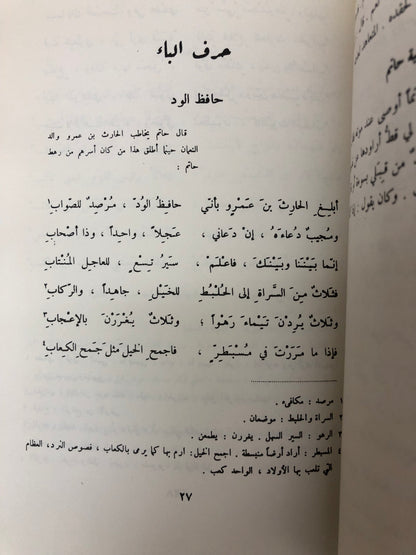 حرف الباء
حافظ الود
قال حاتم يخاطب الحارث بن عمرو والد
النعمان حينما أطلق هذا من كان أسرهم من رهط
حاتم :
أبلغِ الحارثَ بنَ عَمْرٍو بأنّي حافِظُ الوُدّ ، مُرْصِدٌ للصّوابِ١
ومُجيبٌ دُعاءَهُ ، إنْ دَعاني ، عَجِلاً ، واحِداً ، وذا أصْحابِ
إنّما بَيْنَنا وبَيْنَكَ ، فاعْلَمْ ، سَيرُ تِسْعٍ ، للعاجِلِ المُنْتابِ
فثَلاثٌ مِنَ السَّراةِ إلى الحُلْبُطِ للخَيْلِ ، جاهِداً ، والرّكابِ٢
وثَلاثٌ يُرِدْنَ تَيْماءَ رَهْواً ؛ وثَلاثٌ يُغْرَرْنَ بالإعْجابِ٣
فإذا ما مَرَرْتَ في مُسْبَطِرٍّ ، فاجمحِ الخيلَ مثلَ جَمحِ الكِعابِ٤
١ مرصد : مكافىء .
٢ السراة والحلبط : موضعان .
٣ الرهو : السير السهل . يغررن : يطمعن .
٤ المسبطر : أراد أرضاً منبسطة . اجمح الخيل : ارم بها كما يرمى بالكعاب ، فصوص النرد ، العظام
التي تلعب بها الأولاد ، الواحد كعب .
٢٧